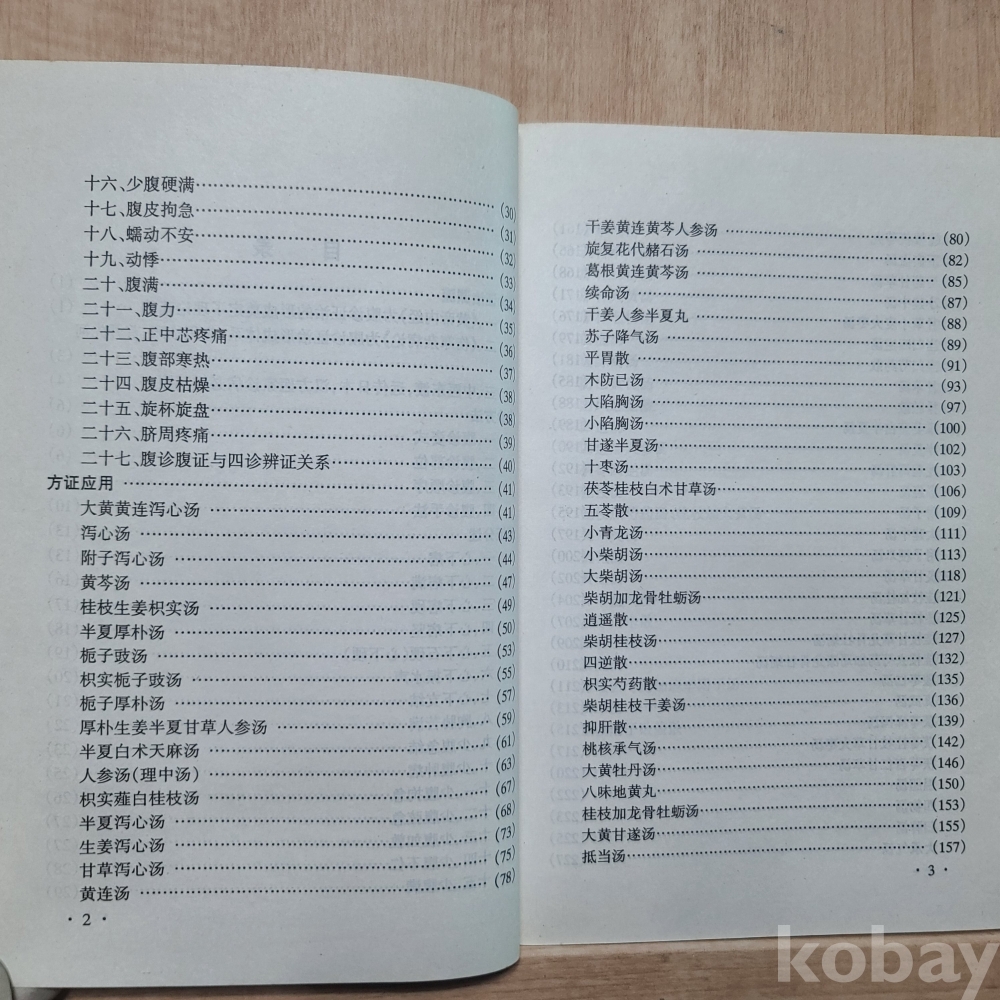 十六、少腹硬满……(30)
十七、腹皮拘急……(31)
十八、蠕动不安……(32)
十九、动悸……(33)
二十、腹满……(34)
二十一、腹力……(35)
二十二、正中芯疼痛……(36)
二十三、腹部寒热……(37)
二十四、腹皮枯燥……(38)
二十五、旋杯旋盘……(38)
二十六、脐周疼痛……(39)
二十七、腹诊腹证与四诊辨证关系……(40)
方证应用……(41)
大黄黄连泻心汤……(41)
泻心汤……(43)
附子泻心汤……(44)
黄芩汤……(47)
桂枝生姜枳实汤……(49)
半夏厚朴汤……(50)
栀子豉汤……(53)
枳实栀子豉汤……(55)
栀子厚朴汤……(57)
厚朴生姜半夏甘草人参汤……(59)
半夏白术天麻汤……(61)
人参汤(理中汤)……(63)
枳实薤白桂枝汤……(67)
半夏泻心汤……(68)
生姜泻心汤……(73)
甘草泻心汤……(75)
黄连汤……(78)
· 2 ·
干姜黄连黄芩人参汤……(80)
旋复花代赭石汤……(82)
葛根黄连黄芩汤……(85)
续命汤……(87)
干姜人参半夏丸……(88)
苏子降气汤……(89)
平胃散……(91)
木防已汤……(93)
大陷胸汤……(97)
小陷胸汤……(100)
甘遂半夏汤……(102)
十枣汤……(103)
茯苓桂枝白术甘草汤……(106)
五苓散……(109)
小青龙汤……(111)
小柴胡汤……(113)
大柴胡汤……(118)
柴胡加龙骨牡蛎汤……(121)
逍遥散……(125)
柴胡桂枝汤……(127)
四逆散……(132)
枳实芍药散……(135)
柴胡桂枝干姜汤……(136)
抑肝散……(139)
桃核承气汤……(142)
大黄牡丹汤……(146)
八味地黄丸……(150)
桂枝加龙骨牡蛎汤……(153)
大黄甘遂汤……(155)
抵当汤……(157)
· 3 ·
kobay